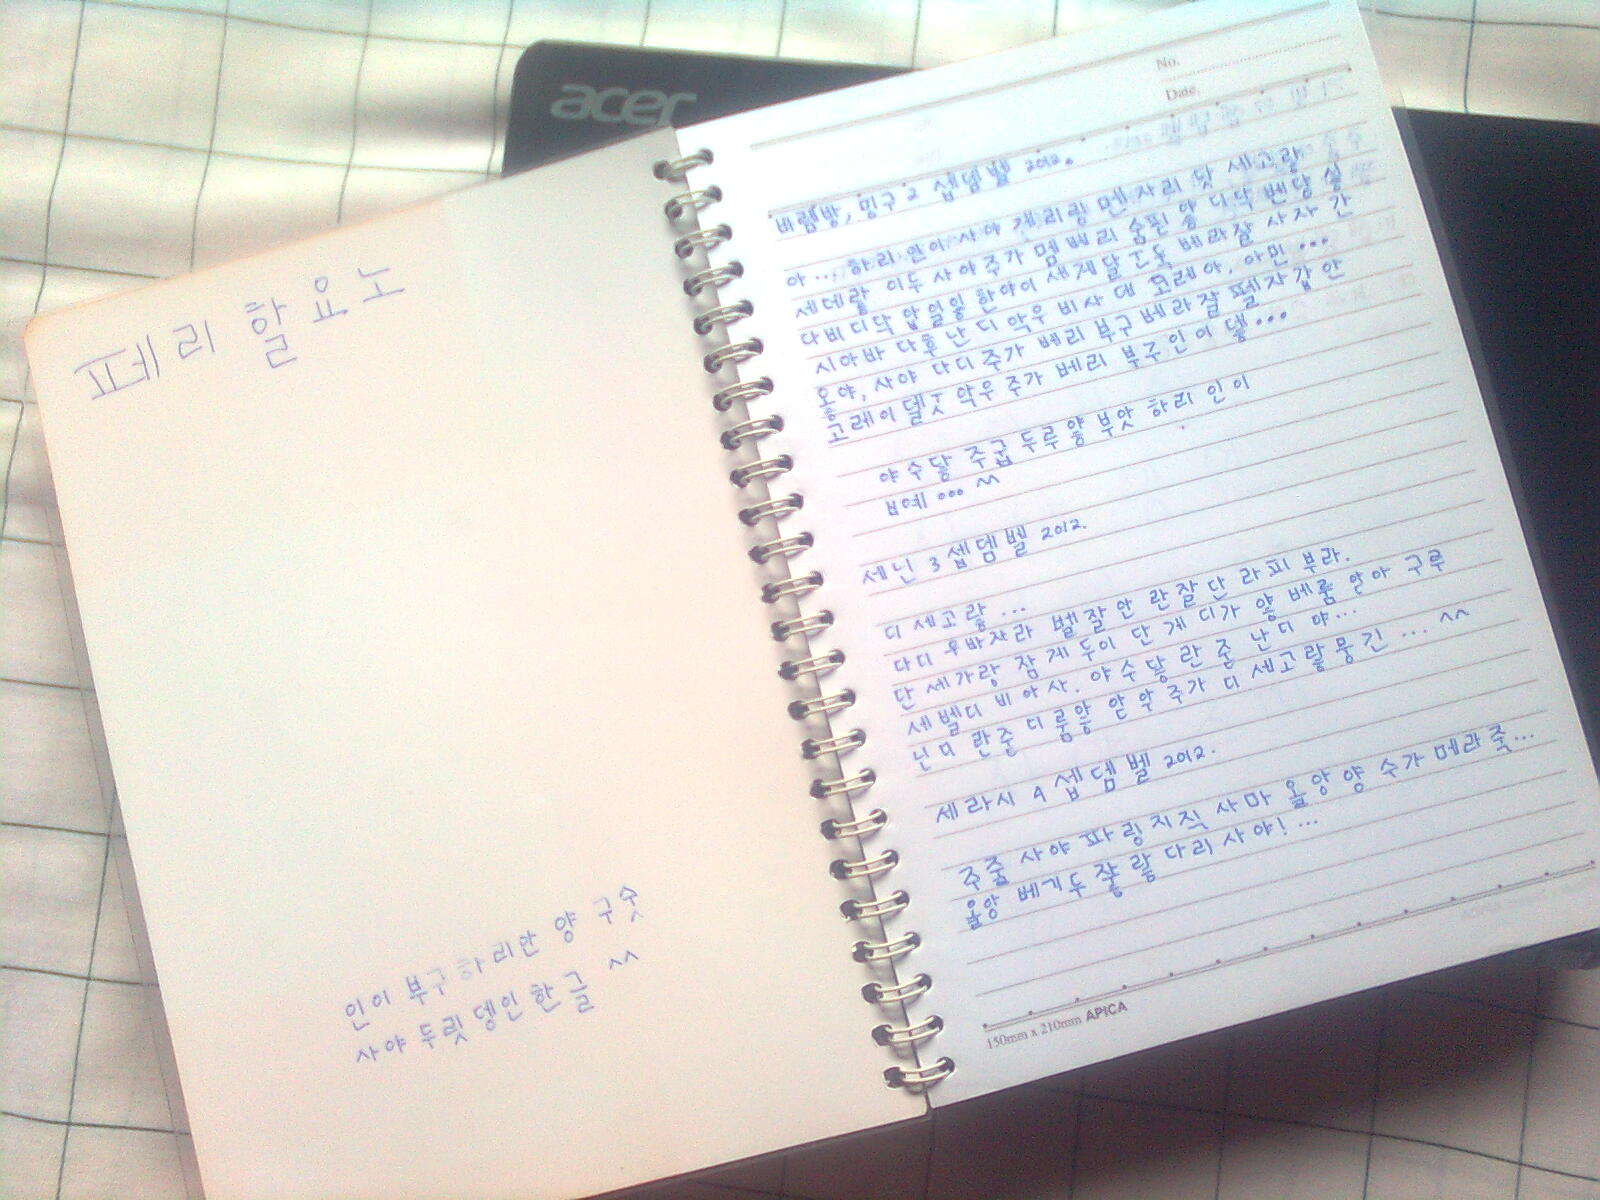 페리 할요노
인이 부구 하리안 양 구숫
사야 두릿 뎅인 한글 ^^
acer
No.
Date.
바렘방, 밍구 2 셉뎀벨 2012.
아... 하리 인이 사야 개리랑 멘자리 닷 세고랗
세데랗 이두 사야 주가 멤베리 숨핀 양 디닥 벤당
다비 디닥 압일일 한야이 세게달 베라잘 사자 간
시아바 다후 난디 악우 비사 데 꼬레아. 아민...
오야, 사야 다디 주가 베리 부구 베라잘 뻴자갑안
꼬레이 델 악우 주가 베리 부구 인이 뎋...
야수당 주굽 두루양 부앗 하리 인이
바예... ^^
세닌 3 셉뎀벨 2012.
디 세고랗...
다디 우바자라 벨잘안 란잘단 라피 부라.
단 세가랑 잠 게두이 단 게디가 양 베룸 앋아 구루
세벨디 비아사. 야수당 란준 난디 야...
닌디 란준 디룸앟 앋우 주가 디 세고랗 뭉긴... ^^
세라시 4 셉뎀벨 2012.
주줄 사야 파링 지직 사마 올앙 양 수가 메라죽...
올앙 베기두 쟣랗 다리 사야!...
150mm x 210mm APICA